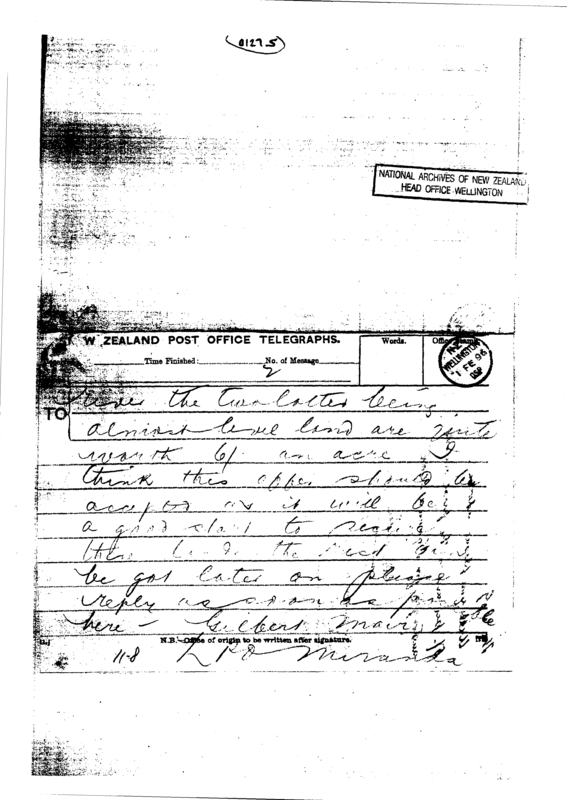 0127.5
NATIONAL ARCHIVES OF NEW ZEALAND
HEAD OFFICE WELLINGTON
W ZEALAND POST OFFICE TELEGRAPHS.
Words.
Time Finished: No. of Message
2
WELLINGTON
FE 96
TO
the two latter being
almost level land are quite
worth 6/ an acre I
think this offer should be
accepted as it will be
a good start to
the
be got later on please
reply as soon as
here - Gilbert Mair
N.B.—Office of origin to be written after signature.
11-8 Miranda